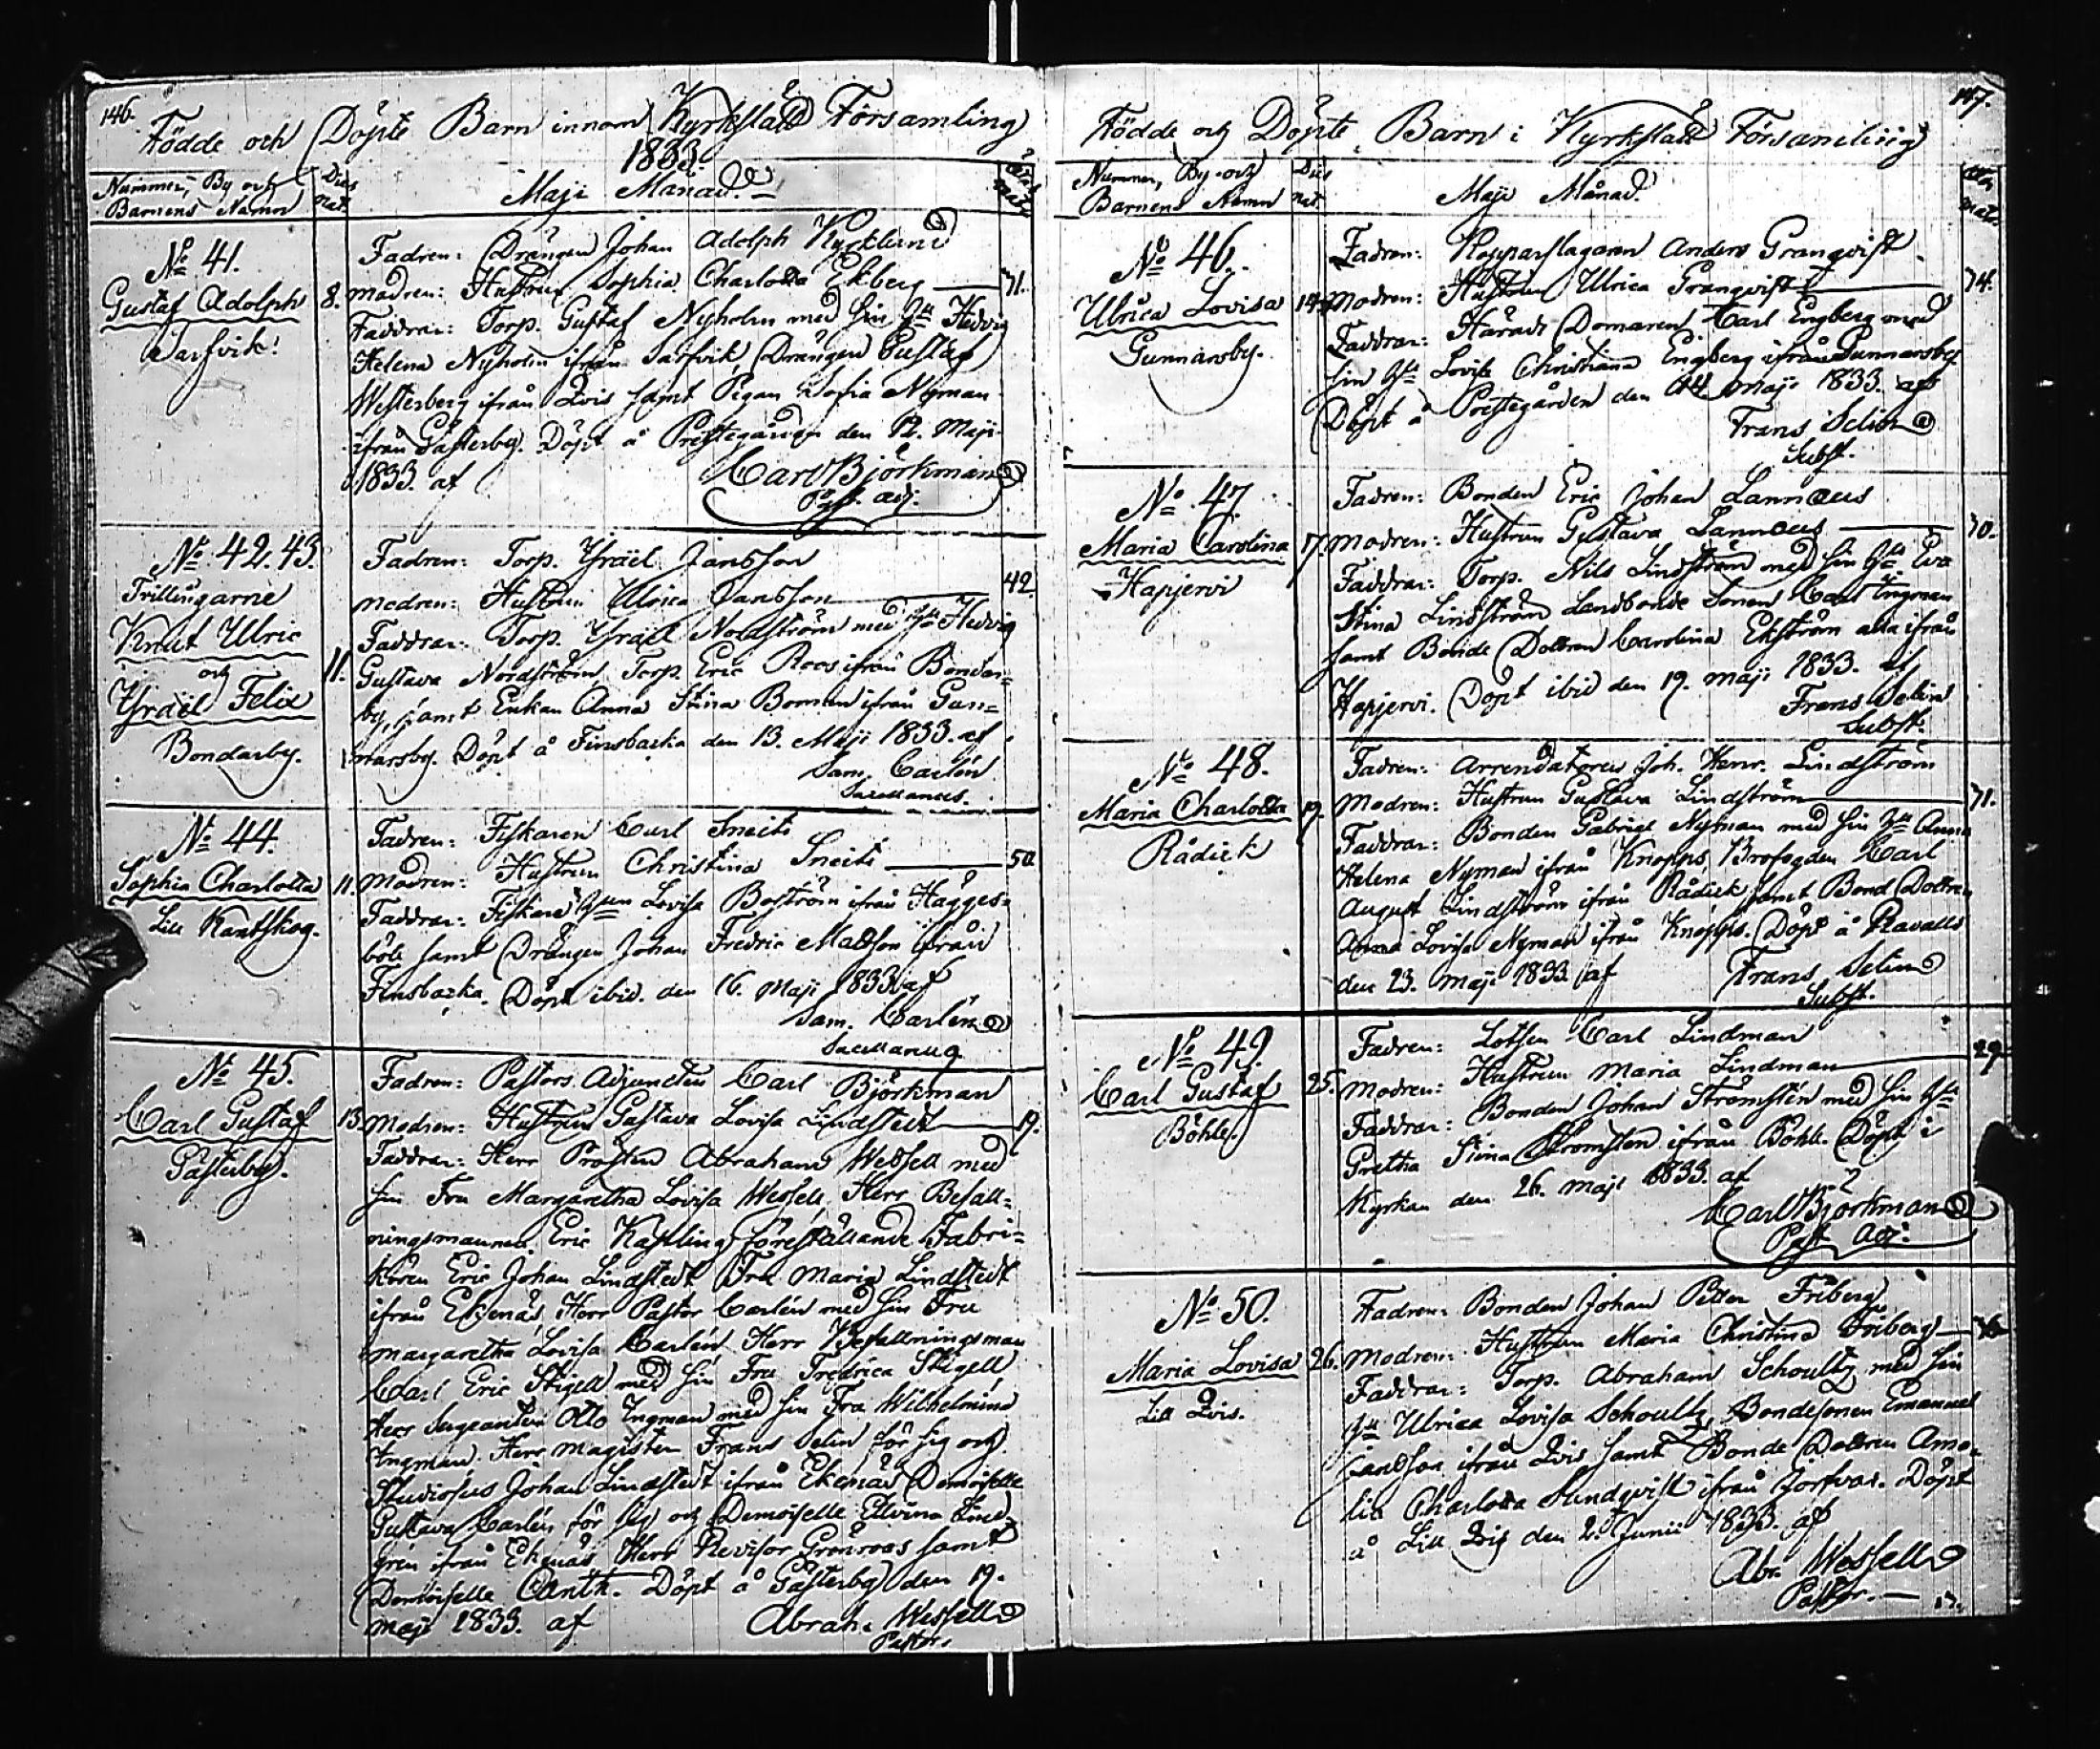 146.
Födde och Döpte Barn innom Kyrkslätt Församling
1833.
Nummer, By och
Barnens Namn
Dies
nat.
Maji Månad.
Ætas
matr.
No 41.
Gustaf Adolph
Sarfvik.
8.
Fadren: Drängen Johan Adolph Kyrklund
Modren: Hustrun Sophia Charlotta Ekberg — 71.
Faddrar: Torp. Gustaf Nyholm med sin Hu Hedvig
Helena Nyholm ifrån Sarfvik, Drängen Gustaf
Westerberg ifrån Qvis samt Pigan Sofia Nyman
ifrån Gästerby. Döpt å Prestegården den 12. Maji
1833. af
Carl Björkman
Past. adj.
No 42. 43.
Tvillingarne
Knut Ulric
och
Ysräel Felix
Bondarby.
11.
Fadren: Torp. Ysräel Jansson
Modren: Hustrun Ulrica Jansson — 42.
Faddrar: Torp. Ysräel Nordström med Hu Hedvig
Gustava Nordström, Torp. Eric Roos ifrån Bondar=
by, samt Enkan Anna Stina Boman ifrån Gun=
narsby. Döpt å Finsbacka den 13. Maji 1833. af
Sam. Carlén
Sacellanus.
No 44.
Sophia Charlotta
Lill Kantskog.
11.
Fadren: Fiskaren Carl Sneits
Modren: Hustrun Christina Sneits — 50.
Faddrar: Fiskare Hun Lovisa Boström ifrån Hägges=
böle samt Drängen Johan Fredric Mattson ifrån
Finsbacka. Döpt ibid. den 16. Maji 1833. af
Sam. Carlén
Sacellanus.
No 45.
Carl Gustaf
Gästerby.
13.
Fadren: Pastors Adjuncten Carl Björkman
Modren: Hustrun Gustava Lovisa Lindstedt — 19.
Faddrar: Herr Prosten Abraham Wessell med
sin Fru Margaretha Lovisa Wessell, Herr Befall=
ningsmannen Eric Kastling föreställande Fabri=
kören Eric Johan Lindstedt Fru Maria Lindstedt
ifrån Ekenäs, Herr Pastor Carlén med sin Fru
Margaretha Lovisa Carlén Herr Befallningsman
Carl Eric Stigell med sin Fru Fredrica Stigell
Herr Sergeanten Otto Ingman med sin Fru Wilhelmina
Ingman. Herr Magister Frans Selin för sig och
Studiosus Johan Lindstedt ifrån Ekenäs Demoiselle
Gustava Carlén för sig och Demoiselle Elvina Lind=
grén ifrån Ekenäs Herr Revisor Grönroos samt
Demoiselle Anth. Döpt å Gästerby den 19.
Maji 1833. af
Abrah. Wessell
Pastor.
147.
Födde och Döpte Barn i Kyrkslätt Församling
Nummer, By och
Barnens Namn
Dies
nat.
Maji Månad.
Ætas
matr.
No 46.
Ulrica Lovisa
Gunnarsby.
14.
Fadren: Kopparslagaren Anders Granqvist
Modren: Hustrun Ulrica Granqvist — 74.
Faddrar: Härads Domaren Carl Engberg med
sin Hu Lovisa Christiana Engberg ifrån Gunnarsby.
Döpt å Prestegården den Maji 1833. af
Frans Selin
Subst.
No 47.
Maria Carolina
Hapjervi
17.
Fadren: Bonden Eric Johan Lannæus
Modren: Hustrun Gustava Lannæus — 70.
Faddrar: Torp. Nils Lindström med sin Hu Eva
Stina Lindström Landbonde Sonen Carl Ingman
samt Bonde Dottren Carolina Ekström alla ifrån
Hapjervi. Döpt ibid den 19. Maji 1833. af
Frans Selin
Subst.
No 48.
Maria Charlotta
Rådick
19.
Fadren: Arrendatoren Joh. Henr. Lindström
Modren: Hustrun Gustava Lindström — 71.
Faddrar: Bonden Gabriel Nyman med sin Hu Anna
Helena Nyman ifrån Knopps, Brofogden Carl
August Lindström ifrån Rådick samt Bond Dottren
Anna Lovisa Nyman ifrån Knopps. Döpt å Ravalls
den 23. Maji 1833. af
Frans Selin
Subst.
No 49.
Carl Gustaf
Böhle.
25.
Fadren: Lotsen Carl Lindman
Modren: Hustrun Maria Lindman — 29
Faddrar: Bonden Johan Strömstén med sin Hu
Gretha Stina Strömsten ifrån Böhle. Döpt i
Kyrkan den 26. Maji 1833. af
Carl Björkman
Past. Adj.
No 50.
Maria Lovisa
Lill Qvis.
26.
Fadren: Bonden Johan Petter Friberg
Modren: Hustrun Maria Christina Friberg —
Faddrar: Torp. Abraham Schoultz med sin
Hu Ulrica Lovisa Schoultz, Bondesonen Emanuel
Jansson ifrån Qvis samt Bonde Dottren Ama=
lia Charlotta Sundqvist ifrån Jorfvas. Döpt
å Lill Qvis den 2. Junii 1833. af
Abr. Wessell
Pastor. —